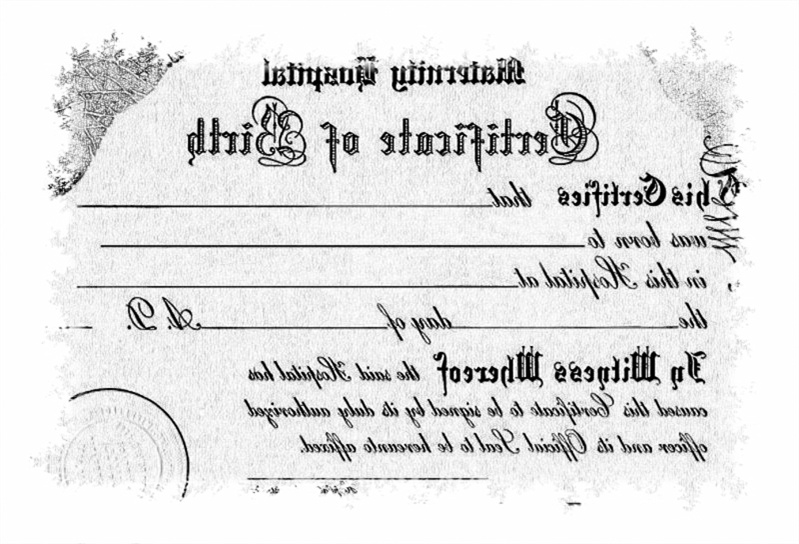 Maternity Hospital
Certificate of Birth
This Certifies that
was born to
in this Hospital at
the day of A. D.
In Witness Whereof the said Hospital has
caused this Certificate to be signed by its duly authorized
officer and its Official Seal to be hereunto affixed.